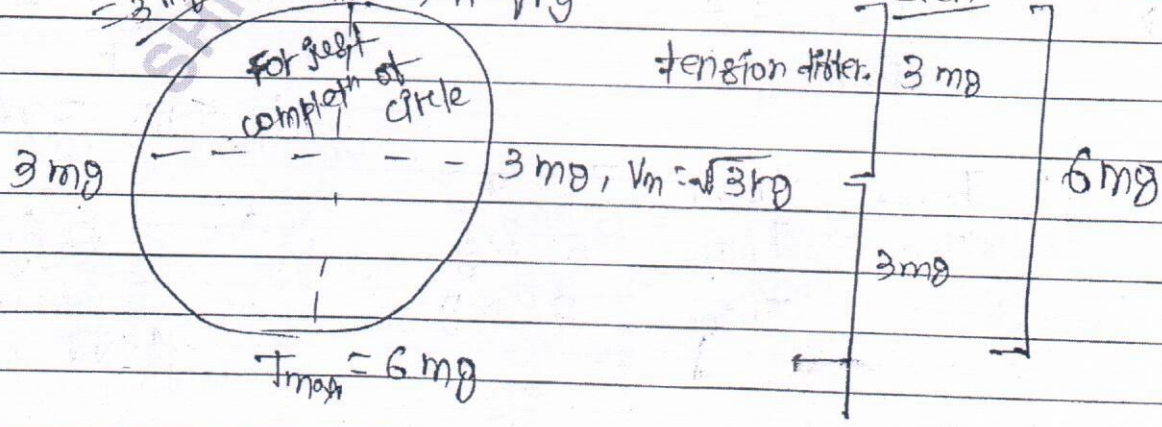 = 3 mg
For just
completn of
circle
tension differ. 3 mg
3 mg 3 mg, Vm = √3rg 6 mg
3 mg
Tmax = 6 mg